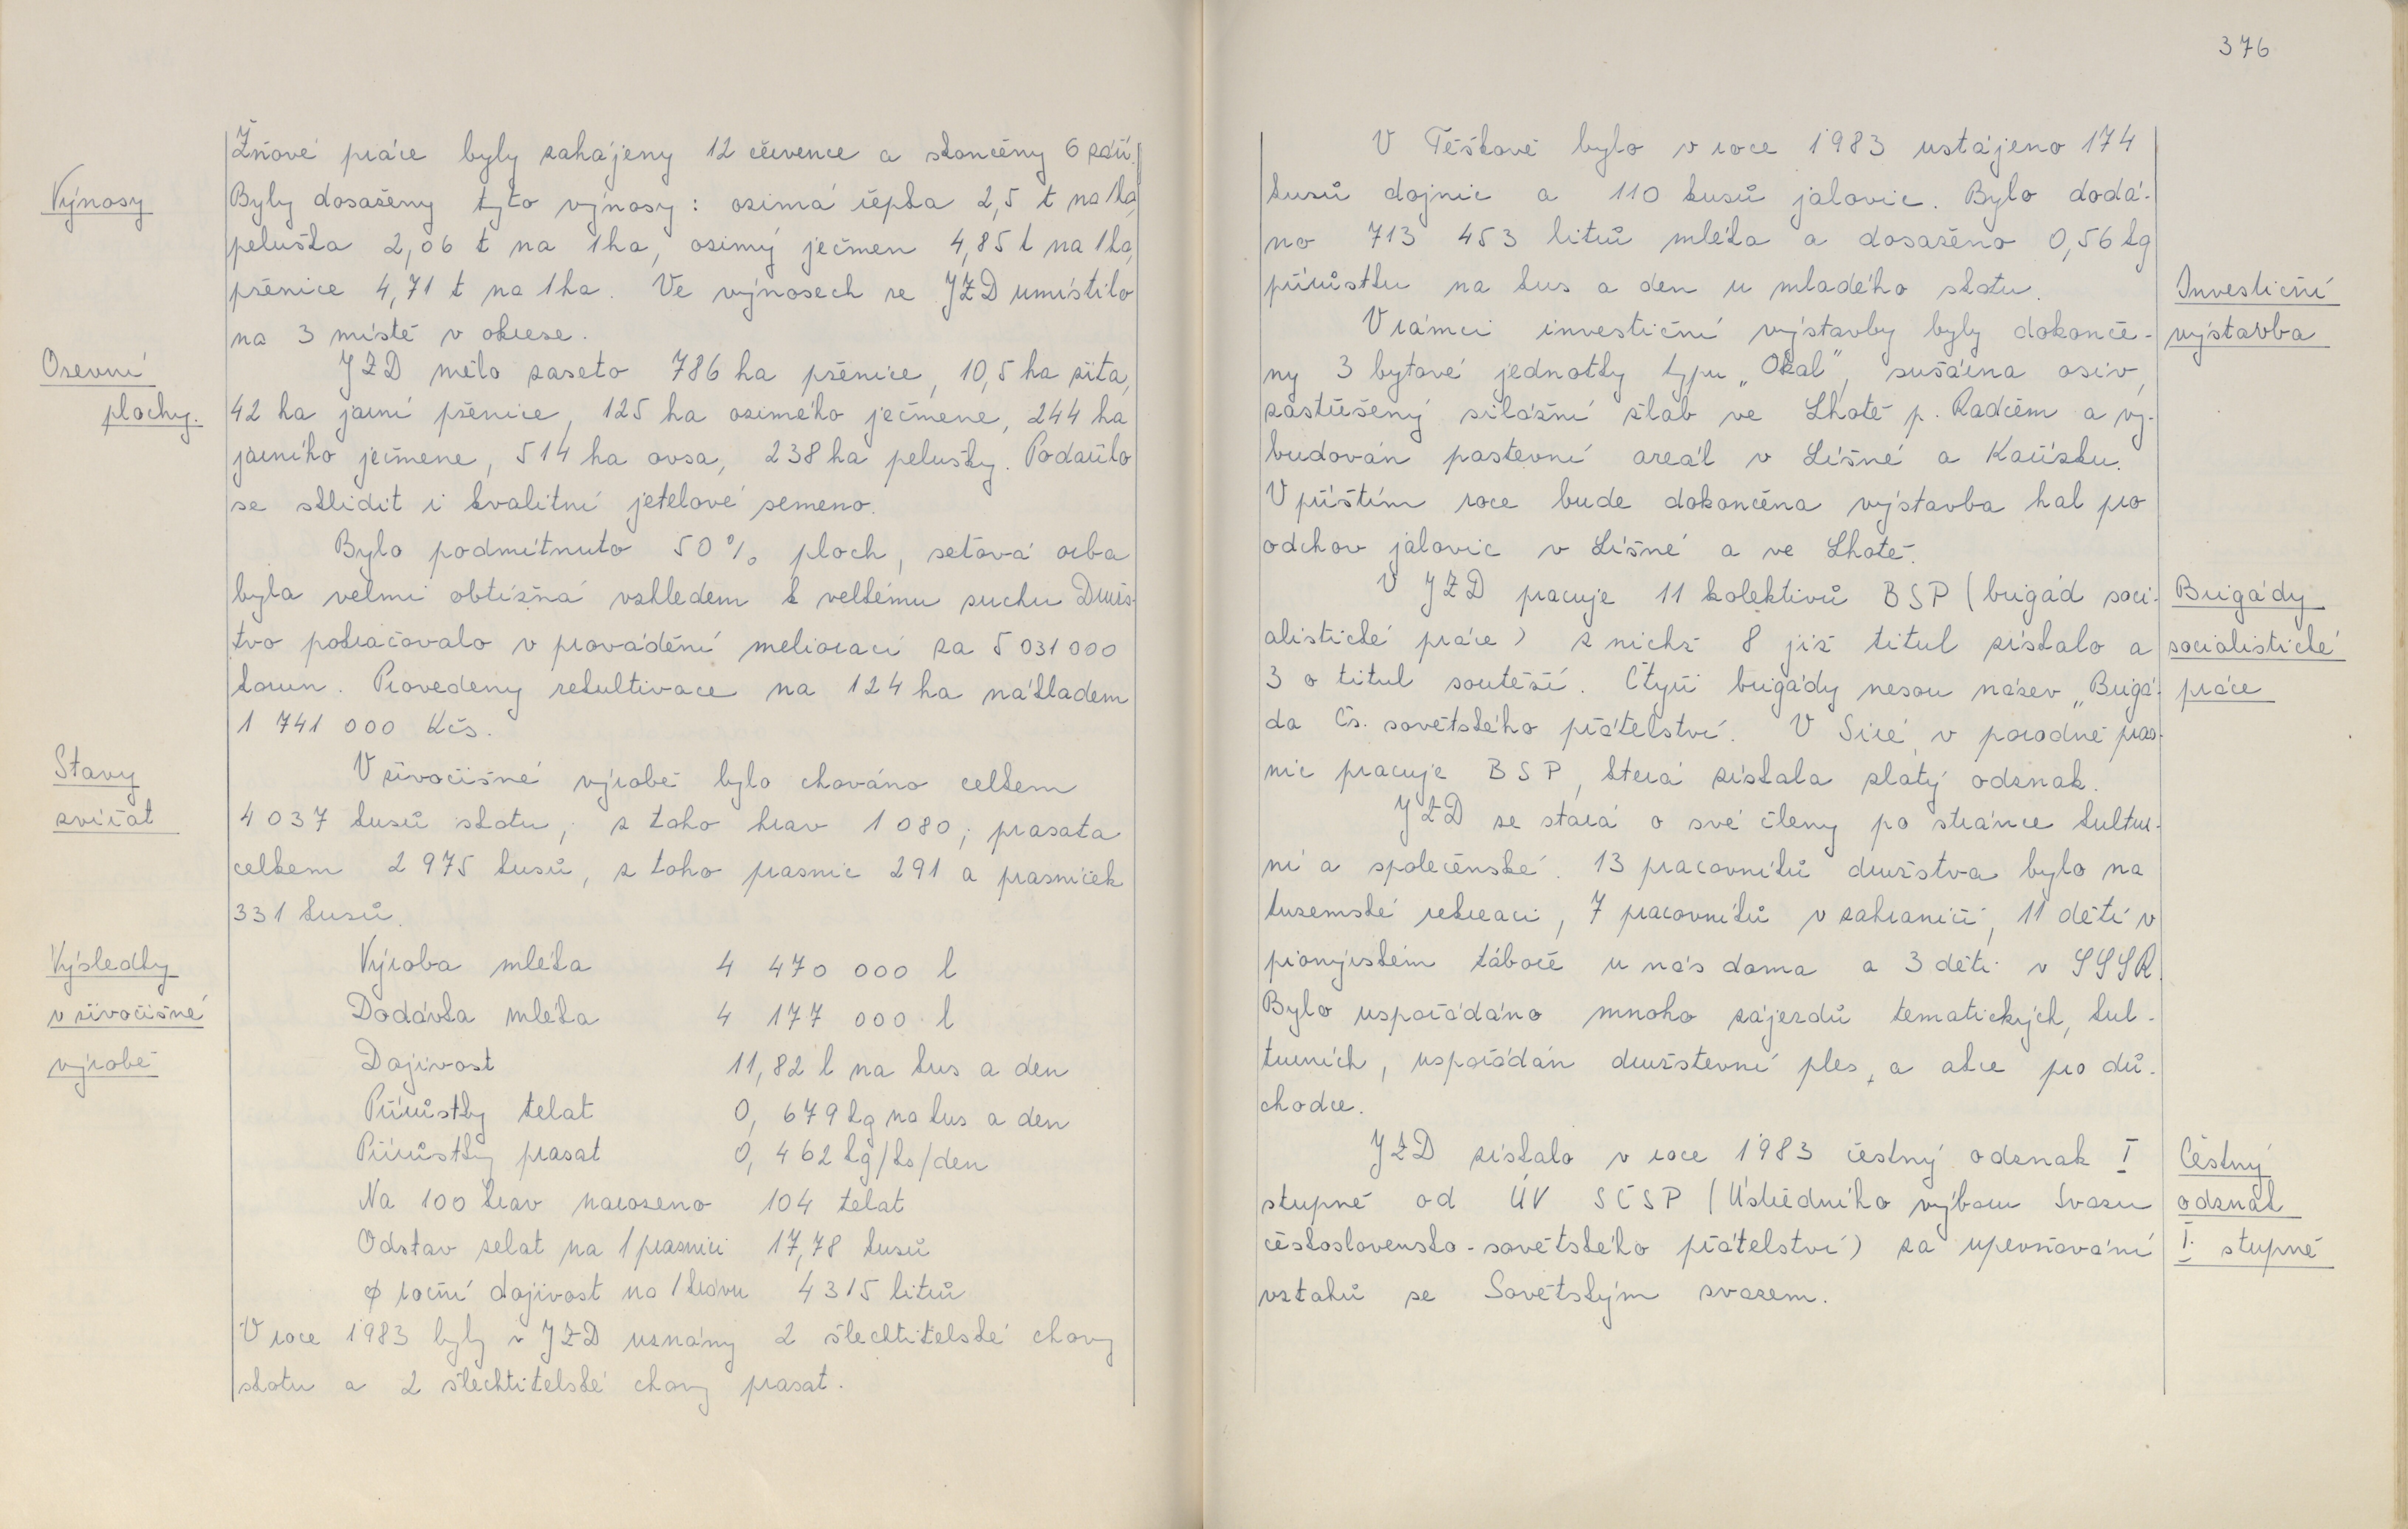 Výnosy
Osevní
plochy.
Stavy
zvířat
Výsledky
v živočišné
výrobě
Žňové práce byly zahájeny 12 července a skončeny 6 září.
Byly dosaženy tyto výnosy: ozimá řepka 2,5 t na 1ha,
peluška 2,06 t na 1ha, ozimý ječmen 4,85 t na 1ha,
pšenice 4,71 t na 1ha. Ve výnosech se JZD umístilo
na 3 místě v okrese.
JZD mělo zaseto 786 ha pšenice, 10,5 ha žita,
42 ha jarní pšenice, 125 ha ozimého ječmene, 244 ha
jarního ječmene, 514 ha ovsa, 238 ha pelušky. Podařilo
se sklidit i kvalitní jetelové semeno.
Bylo podmítnuto 50% ploch, seťová orba
byla velmi obtížná vzhledem k velkému suchu Druž-
tvo pokračovalo v provádění meliorací za 5 031 000
korun. Provedeny rekultivace na 124 ha nákladem
1 741 000 Kčs.
V živočišné výrobě bylo chováno celkem
4 037 kusů skotu, z toho krav 1 080, prasata
celkem 2 975 kusů, z toho prasnic 291 a prasniček
331 kusů.
Výroba mléka 4 470 000 l
Dodávka mléka 4 177 000 l
Dojivost 11,82 l na kus a den
Přírůstky telat 0,679 kg na kus a den
Přírůstky prasat 0,462 kg/ks/den
Na 100 krav narozeno 104 telat
Odstav selat na 1 prasnici 17,78 kusů
ϕ roční dojivost na 1 krávu 4315 litrů
V roce 1983 byly v JZD uznány 2 šlechtitelské chovy
skotu a 2 šlechtitelské chovy prasat.
376
V Těškově bylo v roce 1983 ustájeno 174
kusů dojnic a 110 kusů jalovic. Bylo dodá-
no 713 453 litrů mléka a dosaženo 0,56 kg
přírůstku na kus a den u mladého skotu.
V rámci investiční výstavby byly dokonče-
ny 3 bytové jednotky typu „Okal", sušárna osiv,
zastřešený silážní žlab ve Lhotě p. Radčem a vy-
budován pastevní areál v Líšné a Kařízku.
V příštím roce bude dokončena výstavba hal pro
odchov jalovic v Líšné a ve Lhotě.
V JZD pracuje 11 kolektivů BSP (brigád soci-
alistické práce) z nichž 8 již titul získalo a
3 o titul soutěží. Čtyři brigády nesou název „Brigá-
da čs. sovětského přátelství. V Siré, v porodně pras-
nic pracuje BSP, která získala zlatý odznak.
JZD se stará o své členy po stránce kultur-
ní a společenské. 13 pracovníků družstva bylo na
tuzemské rekreaci, 7 pracovníků v zahraničí, 11 dětí v
pionýrském táboře u nás doma a 3 děti v SSSR.
Bylo uspořádáno mnoho zájezdů tematických, kul-
turních, uspořádán družstevní ples, a akce pro dů-
chodce.
JZD získalo v roce 1983 čestný odznak I
stupně od ÚV SČSP (Ústředního výboru Svazu
československo-sovětského přátelství) za upevňování
vztahů se Sovětským svazem.
Investiční
výstavba
Brigády
socialistické
práce
Čestný
odznak
I. stupně